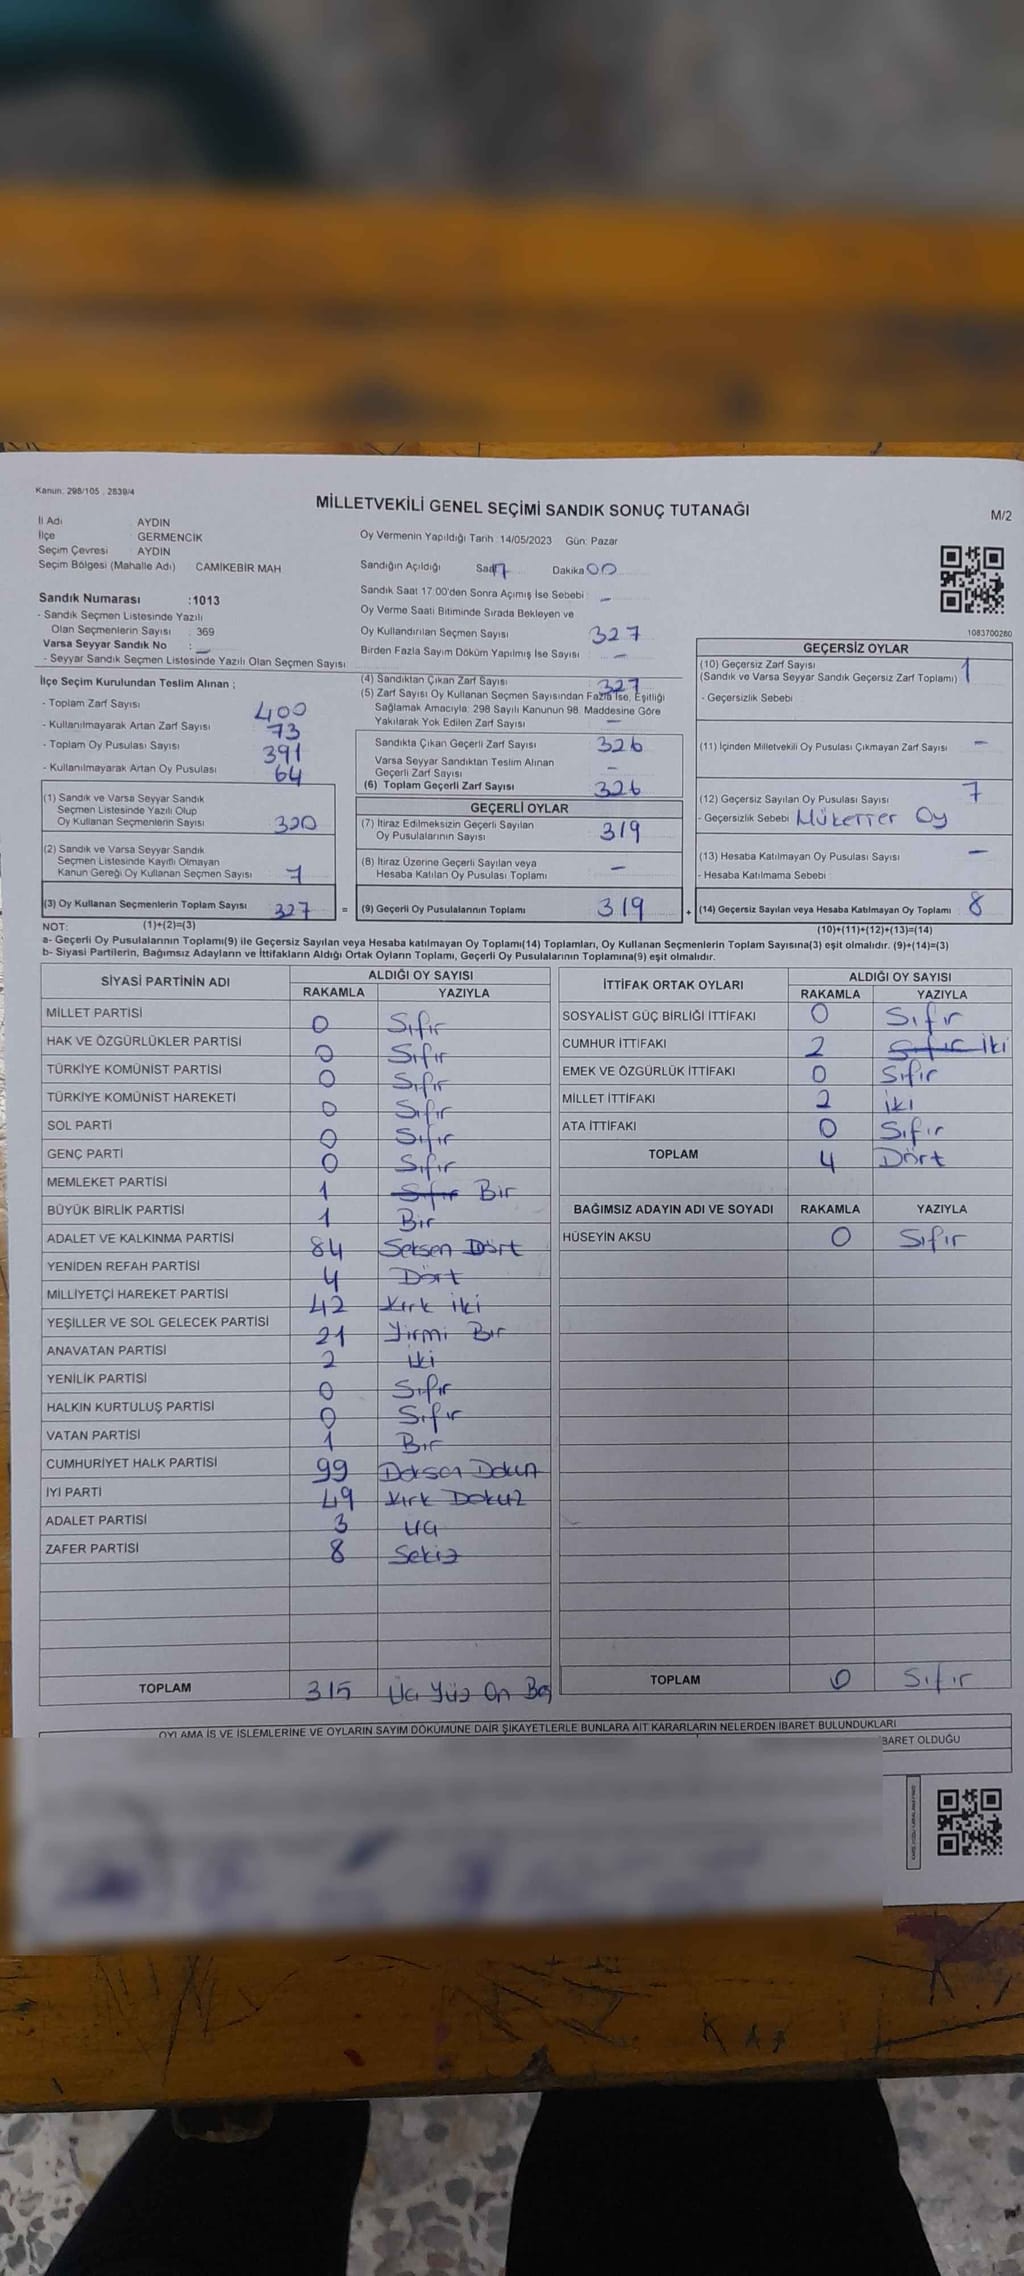 Kanun: 298/105 , 2839/4
MİLLETVEKİLİ GENEL SEÇİMİ SANDIK SONUÇ TUTANAĞI
M/2
İl Adı AYDIN
İlçe GERMENCİK
Seçim Çevresi AYDIN
Seçim Bölgesi (Mahalle Adı) CAMİKEBİR MAH
Oy Vermenin Yapıldığı Tarih :14/05/2023 Gün: Pazar
Sandığın Açıldığı Saat 17 Dakika 00
Sandık Saat 17.00'den Sonra Açılmış İse Sebebi : -
Oy Verme Saati Bitiminde Sırada Bekleyen ve
Oy Kullandırılan Seçmen Sayısı 327
Birden Fazla Sayım Döküm Yapılmış İse Sayısı -
1083700280
Sandık Numarası :1013
- Sandık Seçmen Listesinde Yazılı
Olan Seçmenlerin Sayısı : 369
Varsa Seyyar Sandık No : -
- Seyyar Sandık Seçmen Listesinde Yazılı Olan Seçmen Sayısı
İlçe Seçim Kurulundan Teslim Alınan ;
- Toplam Zarf Sayısı 400
- Kullanılmayarak Artan Zarf Sayısı 73
- Toplam Oy Pusulası Sayısı 391
- Kullanılmayarak Artan Oy Pusulası 64
(1) Sandık ve Varsa Seyyar Sandık
Seçmen Listesinde Yazılı Olup
Oy Kullanan Seçmenlerin Sayısı 320
(2) Sandık ve Varsa Seyyar Sandık
Seçmen Listesinde Kayıtlı Olmayan
Kanun Gereği Oy Kullanan Seçmen Sayısı 7
(3) Oy Kullanan Seçmenlerin Toplam Sayısı 327 =
(1)+(2)=(3)
(4) Sandıktan Çıkan Zarf Sayısı 327
(5) Zarf Sayısı Oy Kullanan Seçmen Sayısından Fazla İse, Eşitliği
Sağlamak Amacıyla; 298 Sayılı Kanunun 98. Maddesine Göre
Yakılarak Yok Edilen Zarf Sayısı -
Sandıkta Çıkan Geçerli Zarf Sayısı 326
Varsa Seyyar Sandıktan Teslim Alınan
Geçerli Zarf Sayısı -
(6) Toplam Geçerli Zarf Sayısı 326
GEÇERLİ OYLAR
(7) İtiraz Edilmeksizin Geçerli Sayılan
Oy Pusulalarının Sayısı 319
(8) İtiraz Üzerine Geçerli Sayılan veya
Hesaba Katılan Oy Pusulası Toplamı -
(9) Geçerli Oy Pusulalarının Toplamı 319 +
GEÇERSİZ OYLAR
(10) Geçersiz Zarf Sayısı
(Sandık ve Varsa Seyyar Sandık Geçersiz Zarf Toplamı) 1
- Geçersizlik Sebebi
(11) İçinden Milletvekili Oy Pusulası Çıkmayan Zarf Sayısı -
(12) Geçersiz Sayılan Oy Pusulası Sayısı 7
- Geçersizlik Sebebi Mükerrer Oy
(13) Hesaba Katılmayan Oy Pusulası Sayısı -
- Hesaba Katılmama Sebebi
(14) Geçersiz Sayılan veya Hesaba Katılmayan Oy Toplamı 8
(10)+(11)+(12)+(13)=(14)
NOT:
a- Geçerli Oy Pusulalarının Toplamı(9) ile Geçersiz Sayılan veya Hesaba katılmayan Oy Toplamı(14) Toplamları, Oy Kullanan Seçmenlerin Toplam Sayısına(3) eşit olmalıdır. (9)+(14)=(3)
b- Siyasi Partilerin, Bağımsız Adayların ve İttifakların Aldığı Ortak Oyların Toplamı, Geçerli Oy Pusulalarının Toplamına(9) eşit olmalıdır.
SİYASİ PARTİNİN ADI ALDIĞI OY SAYISI
RAKAMLA YAZIYLA
MİLLET PARTİSİ 0 Sıfır
HAK VE ÖZGÜRLÜKLER PARTİSİ 0 Sıfır
TÜRKİYE KOMÜNİST PARTİSİ 0 Sıfır
TÜRKİYE KOMÜNİST HAREKETİ 0 Sıfır
SOL PARTİ 0 Sıfır
GENÇ PARTİ 0 Sıfır
MEMLEKET PARTİSİ 1 Sıfır Bir
BÜYÜK BİRLİK PARTİSİ 1 Bir
ADALET VE KALKINMA PARTİSİ 84 Seksen Dört
YENİDEN REFAH PARTİSİ 4 Dört
MİLLİYETÇİ HAREKET PARTİSİ 42 Kırk iki
YEŞİLLER VE SOL GELECEK PARTİSİ 21 Yirmi Bir
ANAVATAN PARTİSİ 2 iki
YENİLİK PARTİSİ 0 Sıfır
HALKIN KURTULUŞ PARTİSİ 0 Sıfır
VATAN PARTİSİ 1 Bir
CUMHURİYET HALK PARTİSİ 99 Doksan Dokuz
İYİ PARTİ 49 Kırk Dokuz
ADALET PARTİSİ 3 Üç
ZAFER PARTİSİ 8 Sekiz
TOPLAM 315 Üç Yüz On Beş
İTTİFAK ORTAK OYLARI ALDIĞI OY SAYISI
RAKAMLA YAZIYLA
SOSYALİST GÜÇ BİRLİĞİ İTTİFAKI 0 Sıfır
CUMHUR İTTİFAKI 2 Sıfır İki
EMEK VE ÖZGÜRLÜK İTTİFAKI 0 Sıfır
MİLLET İTTİFAKI 2 iki
ATA İTTİFAKI 0 Sıfır
TOPLAM 4 Dört
BAĞIMSIZ ADAYIN ADI VE SOYADI RAKAMLA YAZIYLA
HÜSEYİN AKSU 0 Sıfır
TOPLAM 0 Sıfır
OYLAMA İŞ VE İŞLEMLERİNE VE OYLARIN SAYIM DÖKÜMÜNE DAİR ŞİKAYETLERLE BUNLARA AİT KARARLARIN NELERDEN İBARET BULUNDUKLARI
BARET OLDUĞU